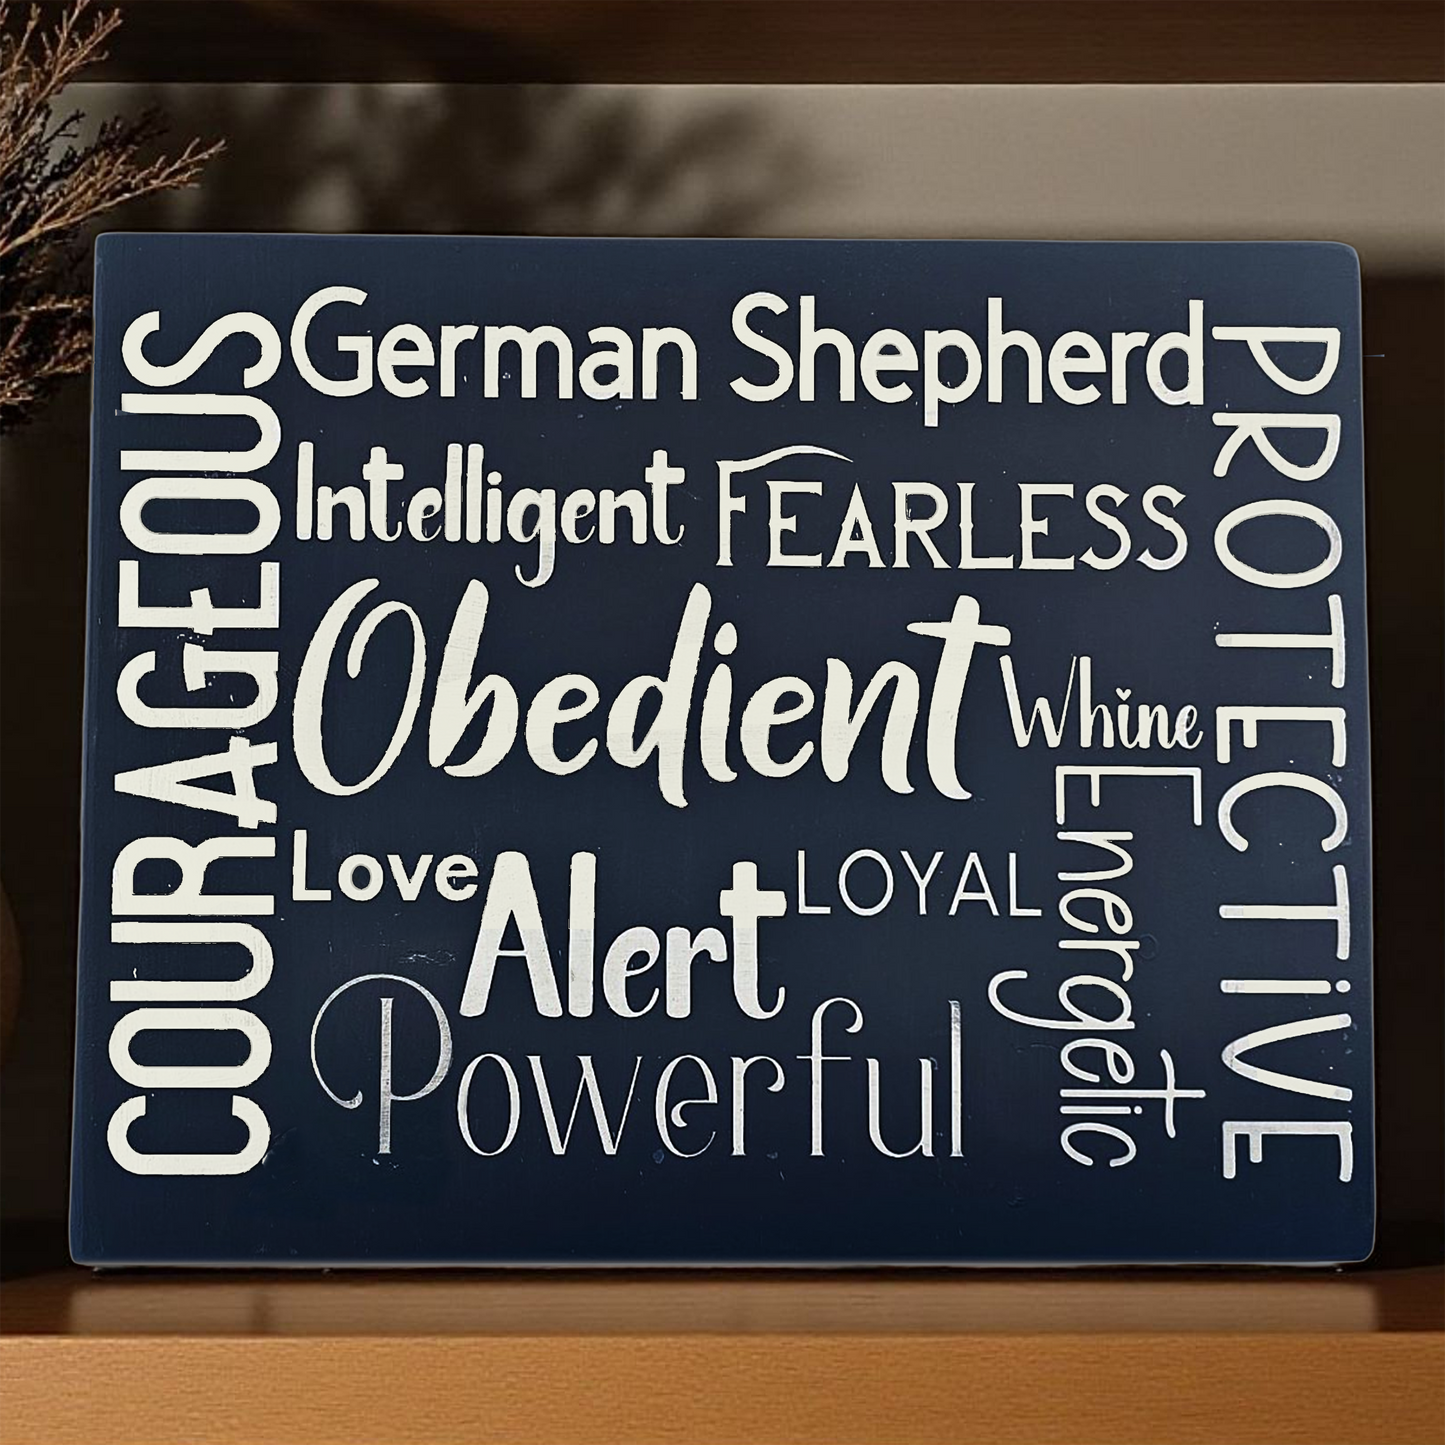 COURAGEOUS
German Shepherd
Intelligent FEARLESS
Obedient
Whine
Love Alert LOYAL
Powerful
Energetic
PROTECTiVE